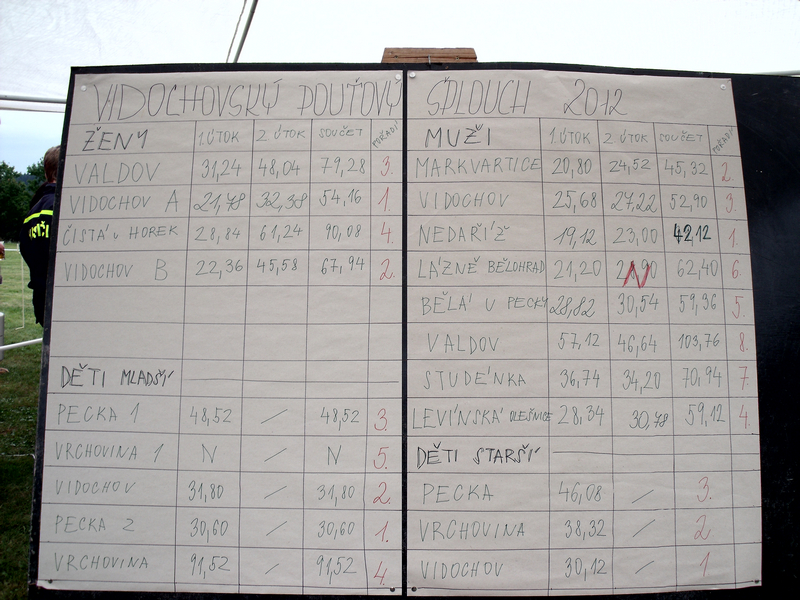 VIDOCHOVSKÝ POUŤOVÝ ŠPLOUCH 2012
ŽENY 1.ÚTOK 2 ÚTOK SOUČET POŘADÍ
VALDOV 31,24 48,04 79,28 3.
VIDOCHOV A 21,78 32,38 54,16 1.
ČISTÁ u HOREK 28,84 61,24 90,08 4.
VIDOCHOV B 22,36 45,58 67,94 2.
DĚTI MLADŠÍ
PECKA 1 48,52 / 48,52 3.
VRCHOVINA 1 N / N 5.
VIDOCHOV 31,80 / 31,80 2.
PECKA 2 30,60 / 30,60 1.
VRCHOVINA 91,52 / 91,52 4.
MUŽI 1.ÚTOK 2 ÚTOK SOUČET POŘADÍ
MARKVARTICE 20,80 24,52 45,32 2.
VIDOCHOV 25,68 27,22 52,90 3.
NEDAŘÍŽ 19,12 23,00 42,12 1.
LÁZNĚ BĚLOHRAD 21,20 N 62,40 6.
BĚLÁ U PECKY 28,82 30,54 59,36 5.
VALDOV 57,12 46,64 103,76 8.
STUDÉNKA 36,74 34,20 70,94 7.
LEVÍNSKÁ OLEŠNICE 28,34 30,78 59,12 4.
DĚTI STARŠÍ
PECKA 46,08 / 3.
VRCHOVINA 38,32 / 2
VIDOCHOV 30,12 / 1.